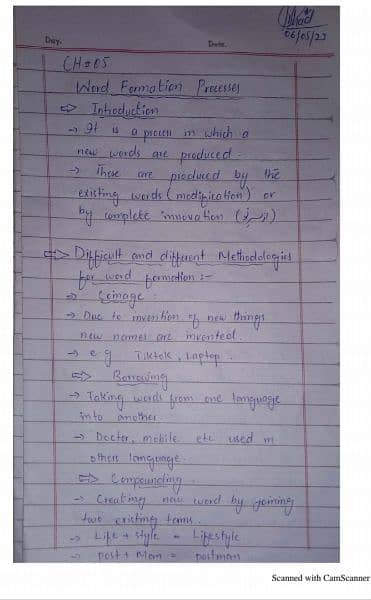 06/05/23
Day.
Date.
CH#05
Word Formation Processes
⇨ Introduction
→ It is a process in which a
new words are produced.
→ These are produced by the
existing words (modification) or
by complete innovation
⇨ Difficult and different Methodologies
for word formation :-
⇨ Coinage :
→ Due to invention of new things
new names are invented.
→ e.g Tiktok, Laptop.
⇨ Borrowing
→ Taking words from one language
into another.
→ Doctor, mobile etc used in
others language.
⇨ Compounding
→ Creating new word by joining
two existing terms.
→ Life + style = Lifestyle
→ post + Man = postman
Scanned with CamScanner